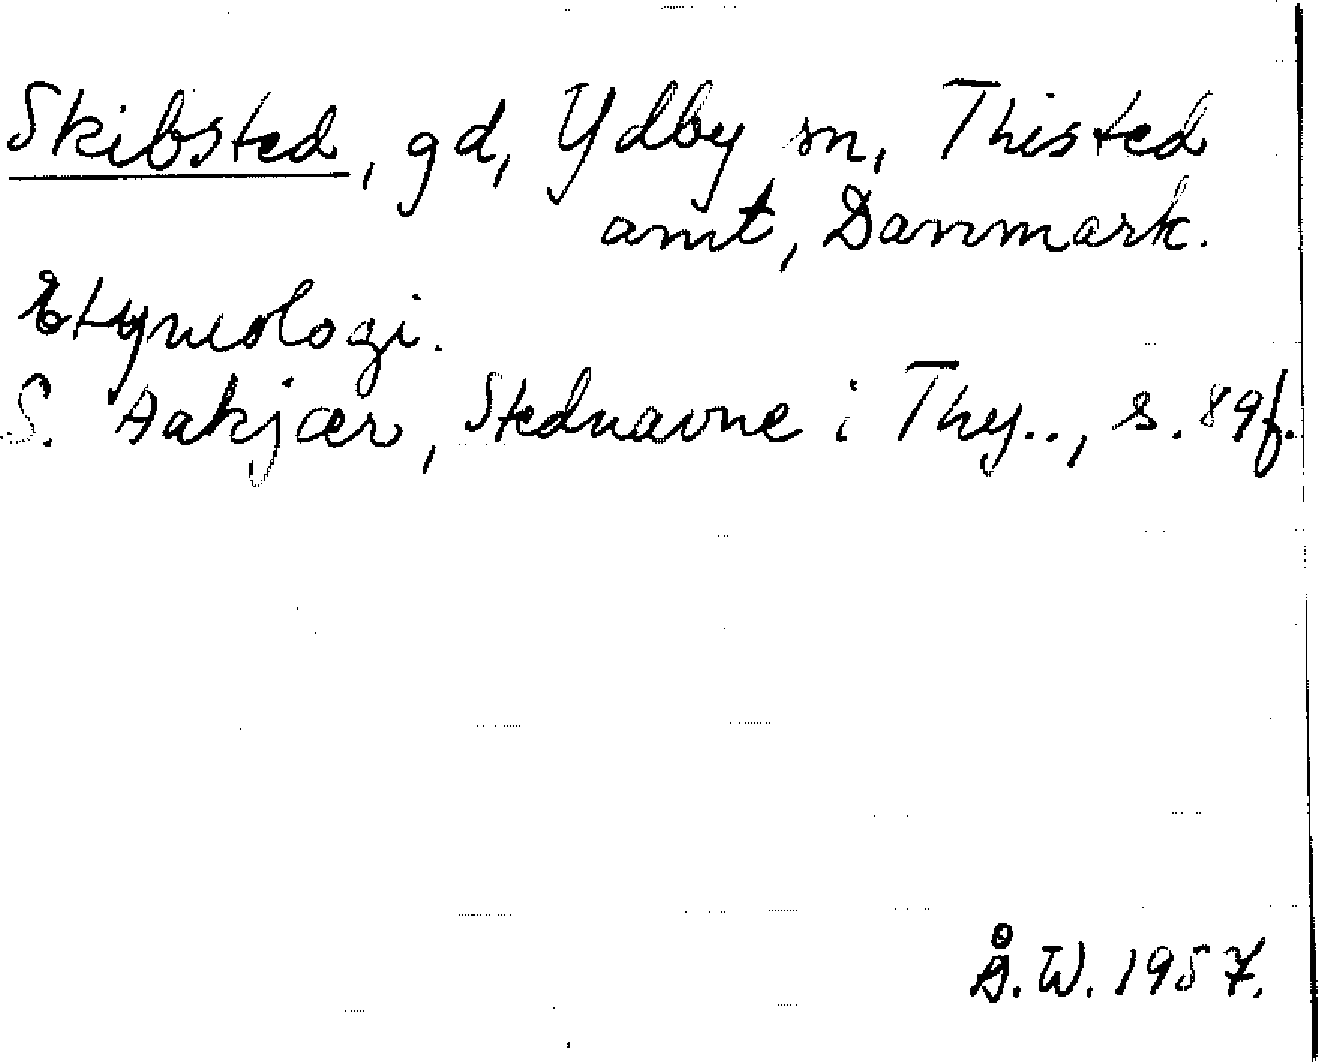 Skibsted, gd, Ydby sn, Thisted
amt, Danmark.
Etymologi.
S. Aakjær, Stednavne i Thy.., s. 89f.
Å.W. 1957.